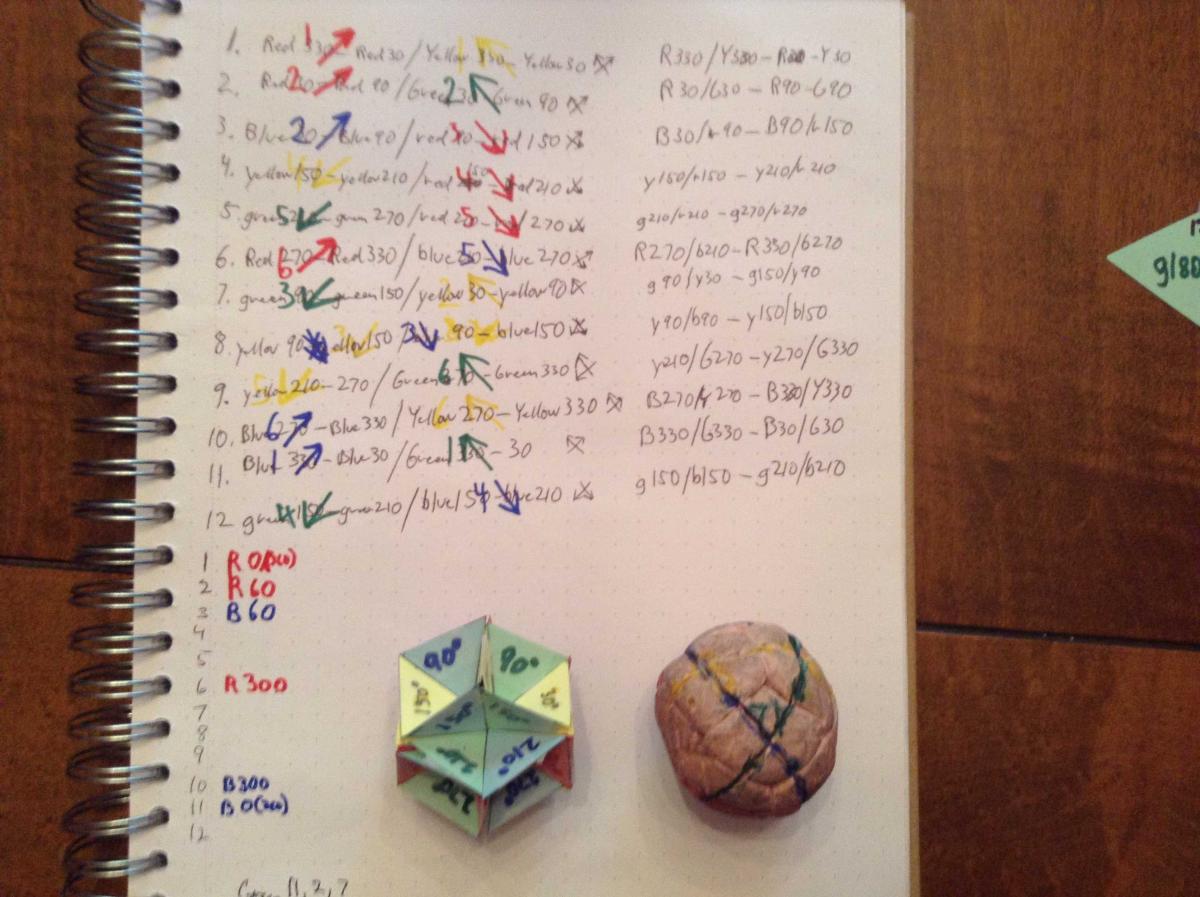 1. Red 330 - Red 30 / Yellow 330 - Yellow 30
R330/Y330 - R30 - Y30
2. Red 30 - Red 90 / Green 30 - Green 90
R30/G30 - R90 - G90
3. Blue 30 - Blue 90 / red 90 - red 150
B30/r90 - B90/r150
4. yellow 150 - yellow 210 / red 150 - red 210
y150/r150 - y210/r210
5. green 210 - green 270 / red 210 - 270
g210/r210 - g270/r270
6. Red 270 - Red 330 / blue 210 - blue 270
R270/b210 - R330/b270
7. green 90 - green 150 / yellow 30 - yellow 90
g90/y30 - g150/y90
8. yellow 90 - yellow 150 / 90 - blue 150
y90/b90 - y150/b150
9. yellow 210 - 270 / Green 270 - Green 330
y210/G270 - y270/G330
10. Blue 270 - Blue 330 / Yellow 270 - Yellow 330
B270/Y270 - B330/Y330
11. Blue 330 - Blue 30 / Green 330 - 30
B330/G330 - B30/G30
12 green 150 - green 210 / blue 150 - blue 210
g150/b150 - g210/b210
1 R 0(360)
2 R 60
3 B 60
4
5
6 R 300
7
8
9
10 B300
11 B 0(360)
12
90° 90°
150° 30°
150° 150°
210° 210°
270° 270°
g/180